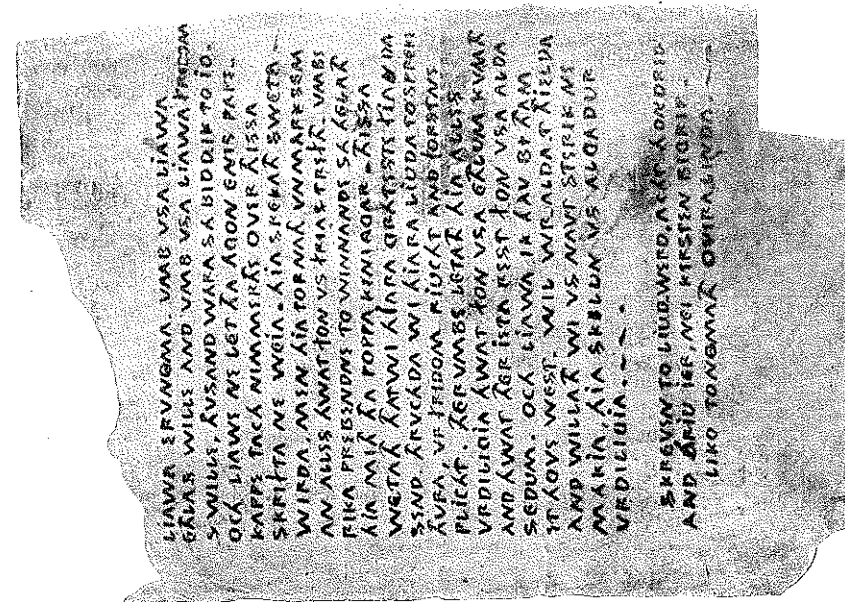 LJAWA ERVNOMA. VMB VSA LJAWA
ETHLAS WILLE AND VMB VSA LJAWA FRIDOM
S WILLE, THUSAND WARA SA BIDD IK TO JO.
OCH LJAWE NE LET THA AGON ENIS PAPE-
KAPPE TACH NIMMERTHE OVER THISSA
SKRIFTA NE WEJA. HJA SPREKATH SWETA
WIRDA, MEN HJA TORNATH VNMARKSEM
AN ALLES HWAT FON VS FRYAS TREFTH. VMBE
RIKA PREBENDNE TO WINNANDE SA HELATH
HJA MITH THA POPPA KENINGGAR. THISSA
WETATH THAT WI HJARA GRATESTE FIANDA
SEND THRVCHDA WI HJARA LIUDA TO SPREKE
THVRA, VR FRIDOM RJUCHT AND FORSTNE
PLICHT. THERVMBE LETATH HJA ALLES
VRDILIGJA HWAT FON VSA ETHLUM KVMATH
AND HWAT THER JETA REST FON VSA ALDA
SEDUM. OCH LJAWA IK HAV BY THAM
ET HOVE WEST. WIL WR.ALDA T THJELDA
AND WILLATH WI VS NAVT STERIK NE
MAKJA, HJA SKILUN VS ALGADUR
VRDILIGJA.
SKREVEN TO LIUDWERD. ACHT HONDRED
AND THRJU JER NEI KERSTEN BIGRIP.
LIKO TONOMATH OVIRA LINDA.